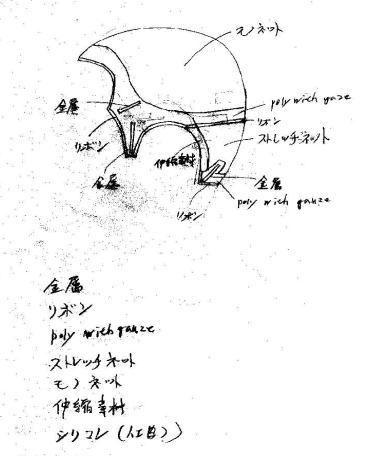 モノネット
poly with gauze
金属
リボン
ストレッチネット
リボン
伸縮素材
金属
金属
poly with gauze
リボン
金属
リボン
poly with gauze
ストレッチネット
モノネット
伸縮素材
シリコレ(人工皮フ)